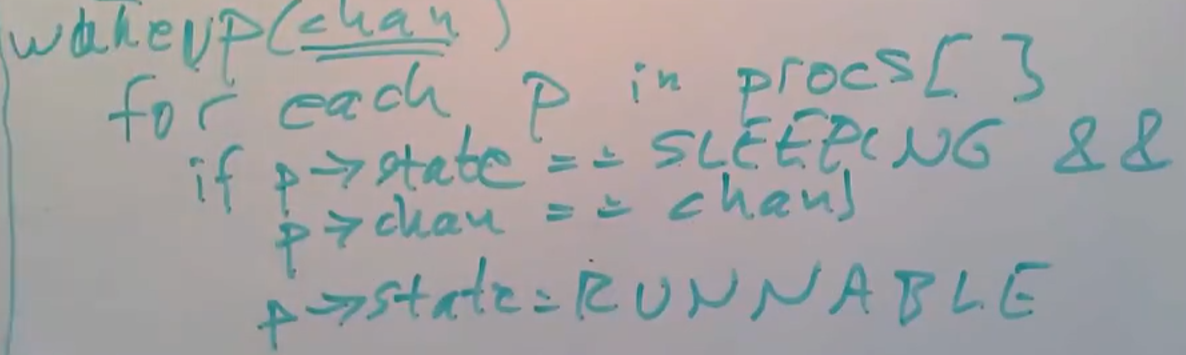 wakeup(chan)
for each p in procs[ ]
if p->state == SLEEPING &&
p->chan == chan)
p->state = RUNNABLE